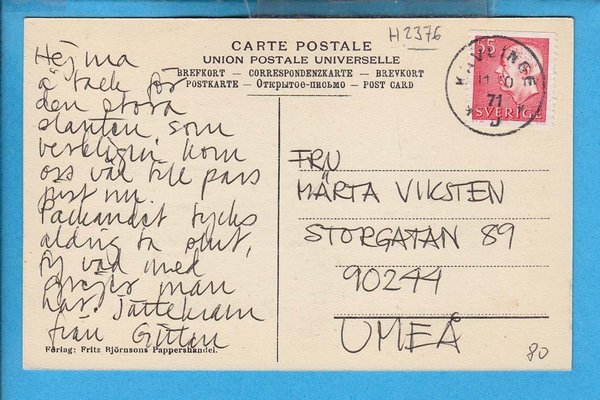 H2376
CARTE POSTALE
UNION POSTALE UNIVERSELLE
BREFKORT — CORRESPONDENZKARTE — BREVKORT
POSTKARTE — Открытое-письмо — POST CARD
55
KÄVLINGE
71
SVERIGE
Hej ma
a tack för
den stora
slanten, som
verkligen kom
oss väl till pass
just nu.
Packandet tycks
aldrig ta slut,
fy vad med
man
har. Jättekram
från Gittan
Förlag: Fritz Björnsons Pappershandel.
FRU
MÄRTA VIKSTEN
STORGATAN 89
90244
UMEÅ
80